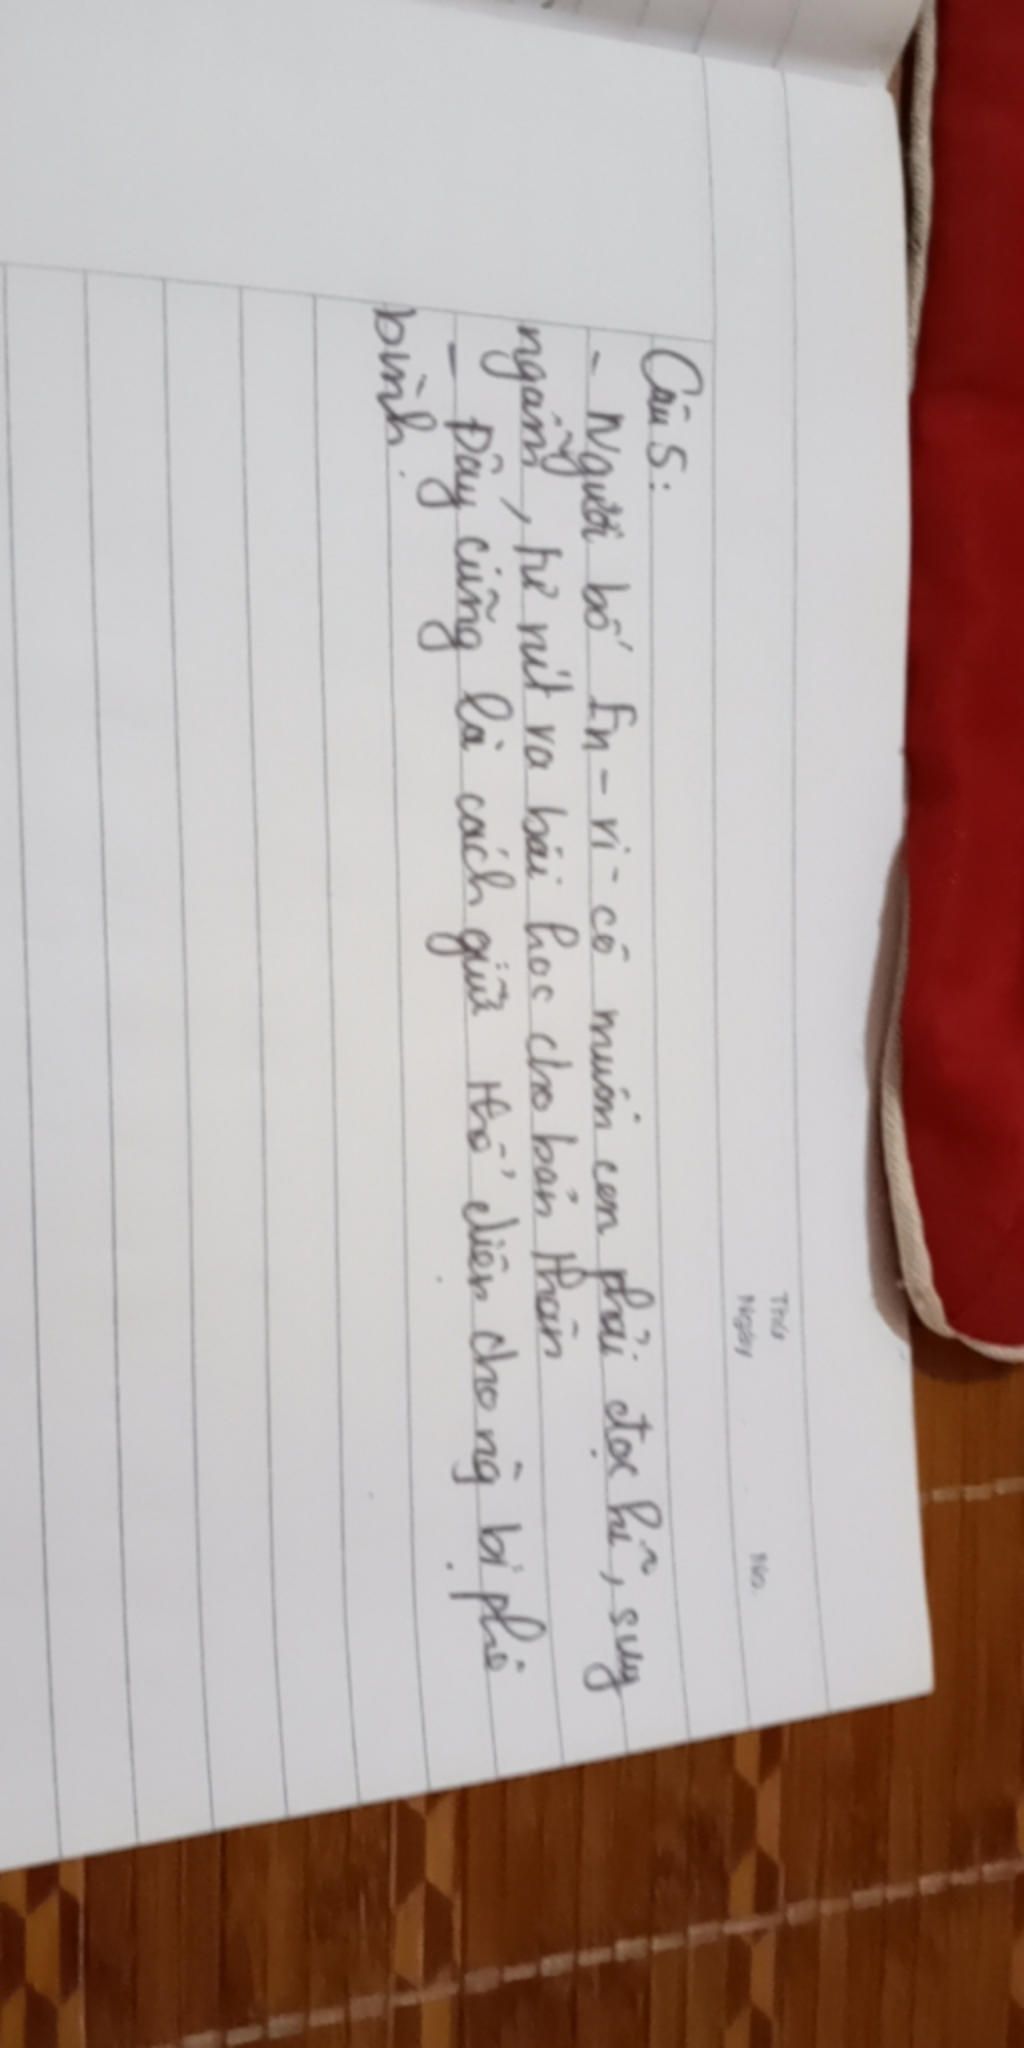 Thứ
Ngày
No.
Câu 5:
- Người bố En-ri-cô muốn con phải đọc kĩ, suy
ngẫm, tự rút ra bài học cho bản thân
- Đây cũng là cách giữ thể diện cho ng̃ bị phê
bình.